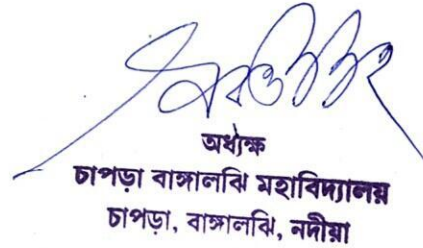 অধ্যক্ষ
চাপড়া বাঙ্গালঝি মহাবিদ্যালয়
চাপড়া, বাঙ্গালঝি, নদীয়া